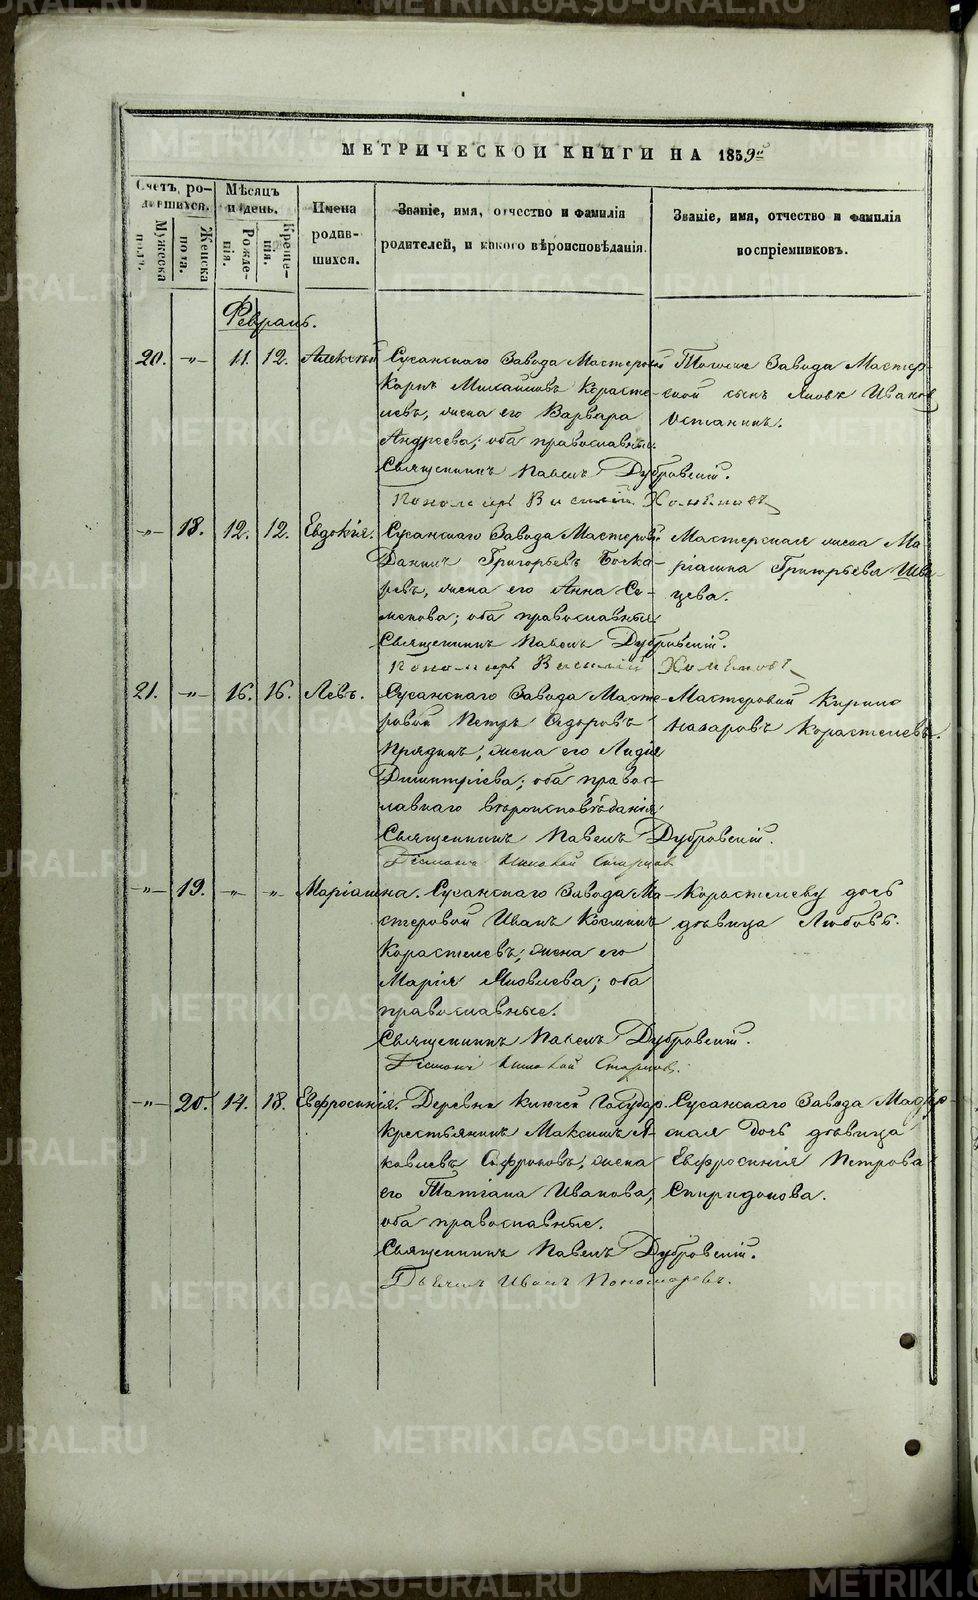 МЕТРИЧЕСКОЙ КНИГИ НА 1859й
Счетъ ро-
дившихся.
Мужеска
пола.
Женска
пола.
Мѣсяцъ
и день.
Рожде-
нія.
Креще-
нія.
Имена
родив-
шихся.
Званіе, имя, отчество и фамилія
родителей, и какого вѣроисповѣданія.
Званіе, имя, отчество и фамилія
воспріемниковъ.
Февраль.
20. -"- 11. 12. Алексѣй
Сусанскаго Завода Мастеровой
Карпъ Михайловъ Корасте-
левъ, жена его Варвара
Андреева; оба православные.
Священникъ Павелъ Дубровскій.
Пономарь Василій
Тогоже Завода Мастер-
ской сынъ Яковъ Иванов
Останинъ.
-"- 18. 12. 12. Евдокія.
Сусанскаго Завода Мастеровой
Даниилъ Григорьевъ Бочка-
ревъ, жена его Анна Се-
менова; оба православные
Священникъ Павелъ Дубровскій.
Пономарь Василій
Мастерская жена Ма-
ріамна Григорьева Шве-
цева.
21. -"- 16. 16. Левъ.
Сусанскаго Завода Масте-
ровой Петръ Ѳедоровъ
Прядеинъ, жена его Лидія
Димитріева; оба правос-
лавнаго вѣроисповѣданія
Священникъ Павелъ Дубровскій.
Дьяконъ Николай Старцов
Мастеровой Кирило
Назаровъ Корастелевъ.
-"- 19. -"- -"- Маріамна.
Сусанскаго Завода Ма-
стеровой Иванъ Косминъ
Корастелевъ, жена его
Марія Яковлева; оба
православные.
Священникъ Павелъ Дубровскій.
Дьяконъ Николай Старцов.
Корастелеву дочь
дѣвица Любовь.
-"- 20. 14. 18. Евфросинія.
Деревни Ключей Государ.
крестьянинъ Максимъ Я-
ковлевъ Софроновъ, жена
его Татіана Иванова,
оба православные.
Священникъ Павелъ Дубровскій.
Дьячекъ Иванъ Пономаревъ.
Сусанскаго Завода Мастер-
ская дочь дѣвица
Евфросинія Петрова
Спиридонова.
METRIKI.GASO-URAL.RU